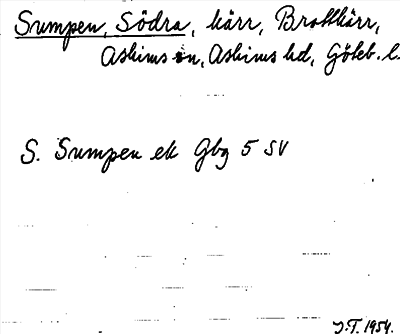 Sumpen, Södra, kärr, Brattkärr,
Askims sn, Askims hd, Göteb. l.
S. Sumpen ek Gbg 5 SV
J.T. 1954.